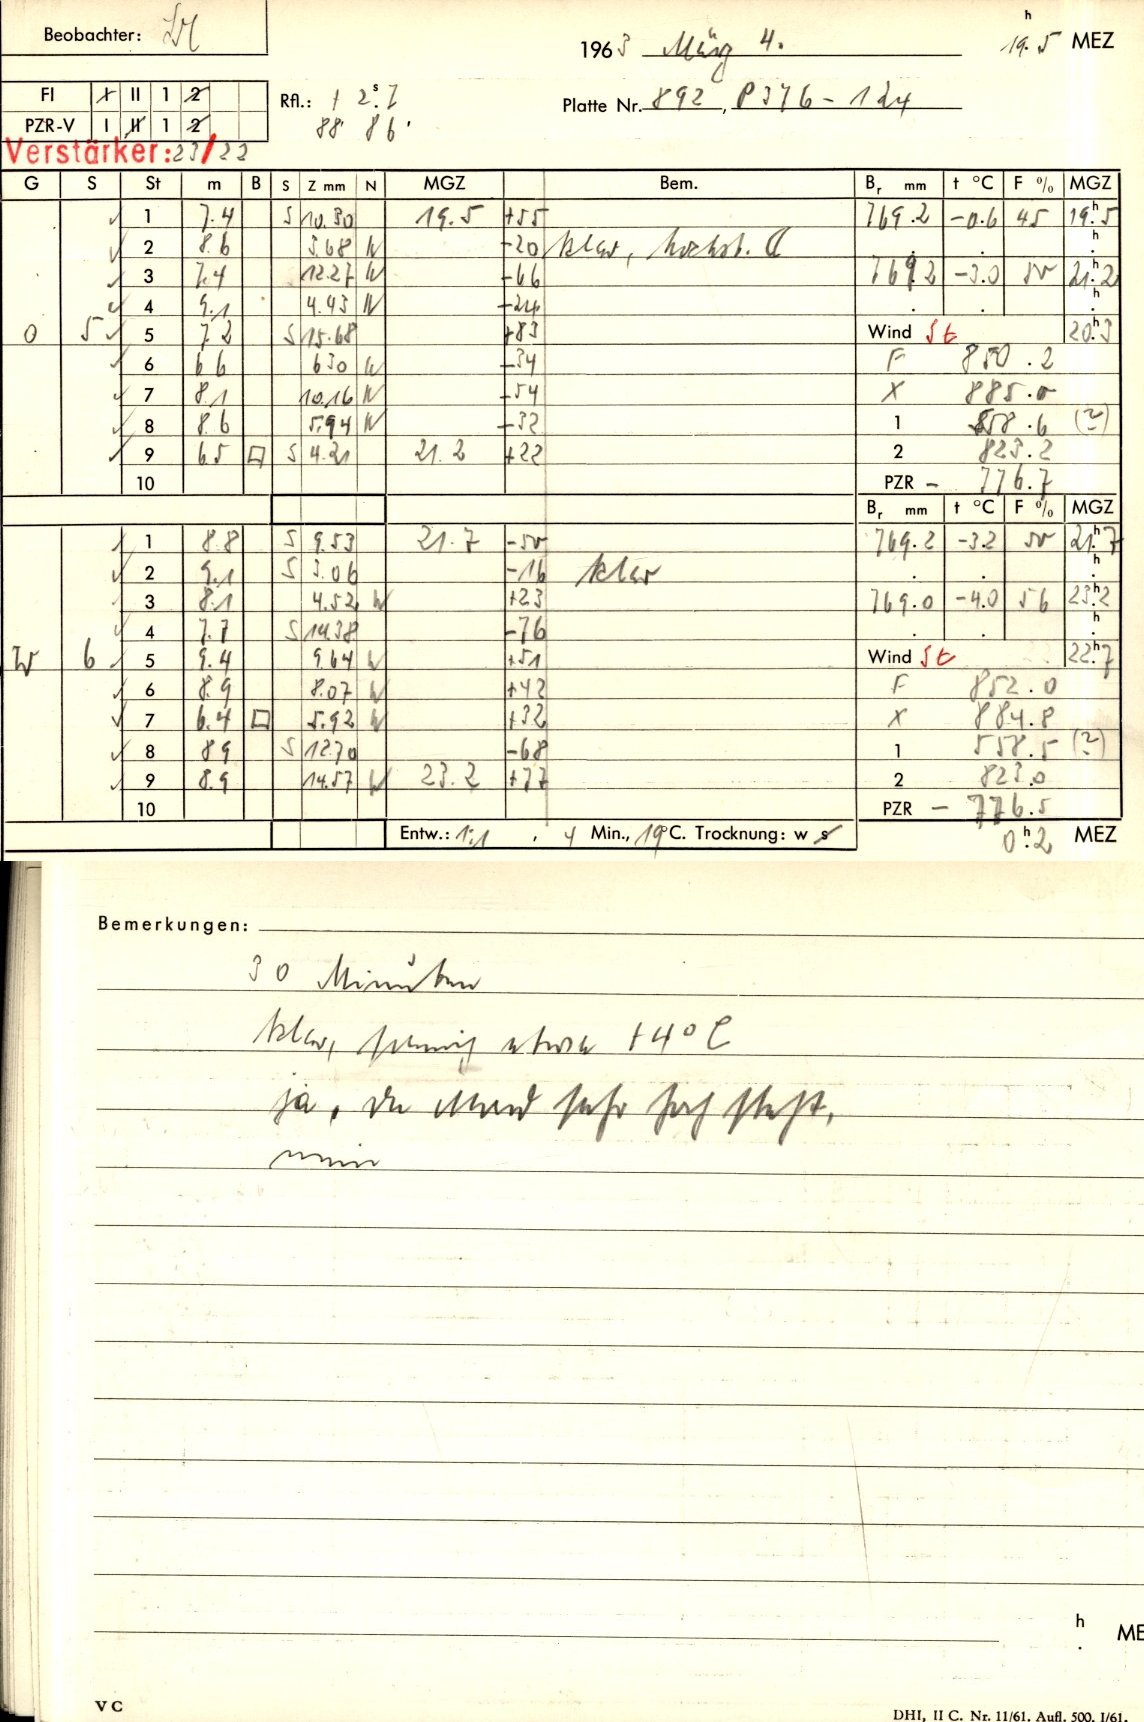 Beobachter:
1963 März 4.
19h.5 MEZ
FI I II 1 2
PZR-V I II 1 2
Rfl.: + 2s.7
88 86.
Platte Nr. 892, P376-124
Verstärker: 23/22
G S St m B S Z mm N MGZ Bem. Br mm t °C F % MGZ
1 7.4 S 10.30 19.5 +55 769.2 -0.6 45 19h.5
2 8.6 3.68 W -20 klar, h
3 7.4 12.27 W -66 769.2 -3.0 50 21h.2
4 9.1 4.43 W -24 h
O 5 5 7.2 S 15.68 +83 Wind St 20h.3
6 6.6 6.30 W -34 F 850.2
7 8.1 10.16 W -54 X 885.0
8 8.6 5.94 W -32 1 858.6 (?)
9 6.5 □ S 4.21 21.2 +22 2 823.2
10 PZR - 776.7
Br mm t °C F % MGZ
1 8.8 S 9.53 21.7 -50 769.2 -3.2 50 21h.7
2 9.1 S 3.06 -16 klar h
3 8.1 4.52 W +23 769.0 -4.0 56 23.2
4 7.7 S 14.38 -76 h
W 6 5 9.4 9.64 W +51 Wind St 22h.7
6 8.9 8.07 W +42 F 852.0
7 6.4 □ 5.92 W +32 X 884.8
8 8.9 S 12.70 -68 1 558.5 (?)
9 8.9 14.57 W 23.2 +77 2 823.0
10 PZR - 776.5
Entw.: 1:1 , 4 Min., 19°C. Trocknung: w s
0h.2 MEZ
Bemerkungen:
30 Minuten
klar, sonnig etwa +4°C
ja, da Mond sehr hoch steht.
nein
h
. ME
V C
DHI, II C. Nr. 11/61. Aufl. 500. I/61.